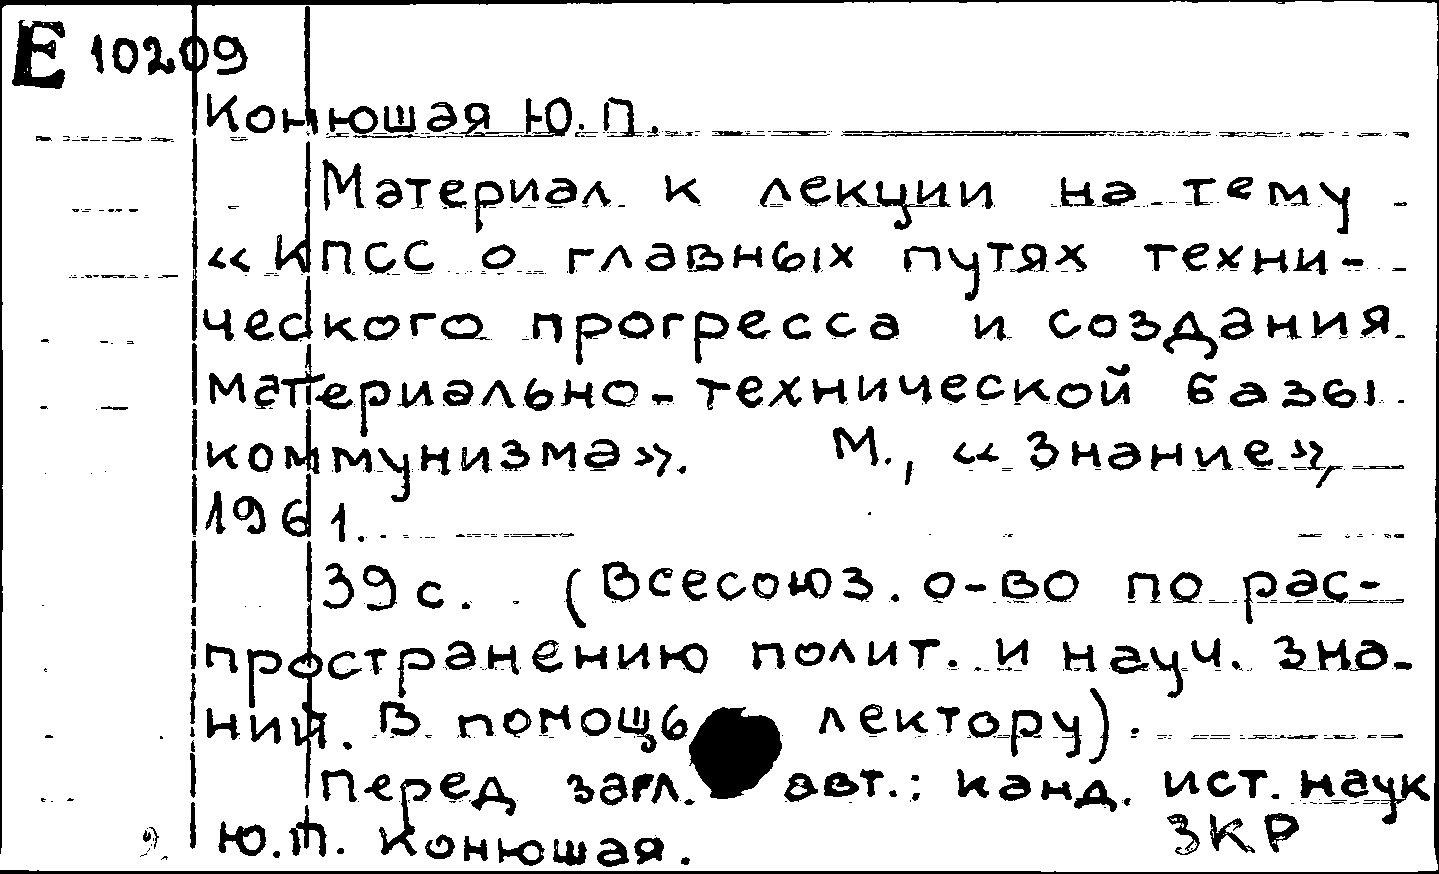 Е 10209
Конюшая Ю. П.
Материал к лекции на тему
«КПСС о главных путях техни-
ческого прогресса и создания
материально-технической базы
коммунизма». М., «Знание»,
1961.
39 с. (Всесоюз. о-во по рас-
пространению полит. и науч. зна-
ний. В помощь лектору).
Перед загл. авт.: канд. ист. наук
Ю.П. Конюшая.
ЗКР